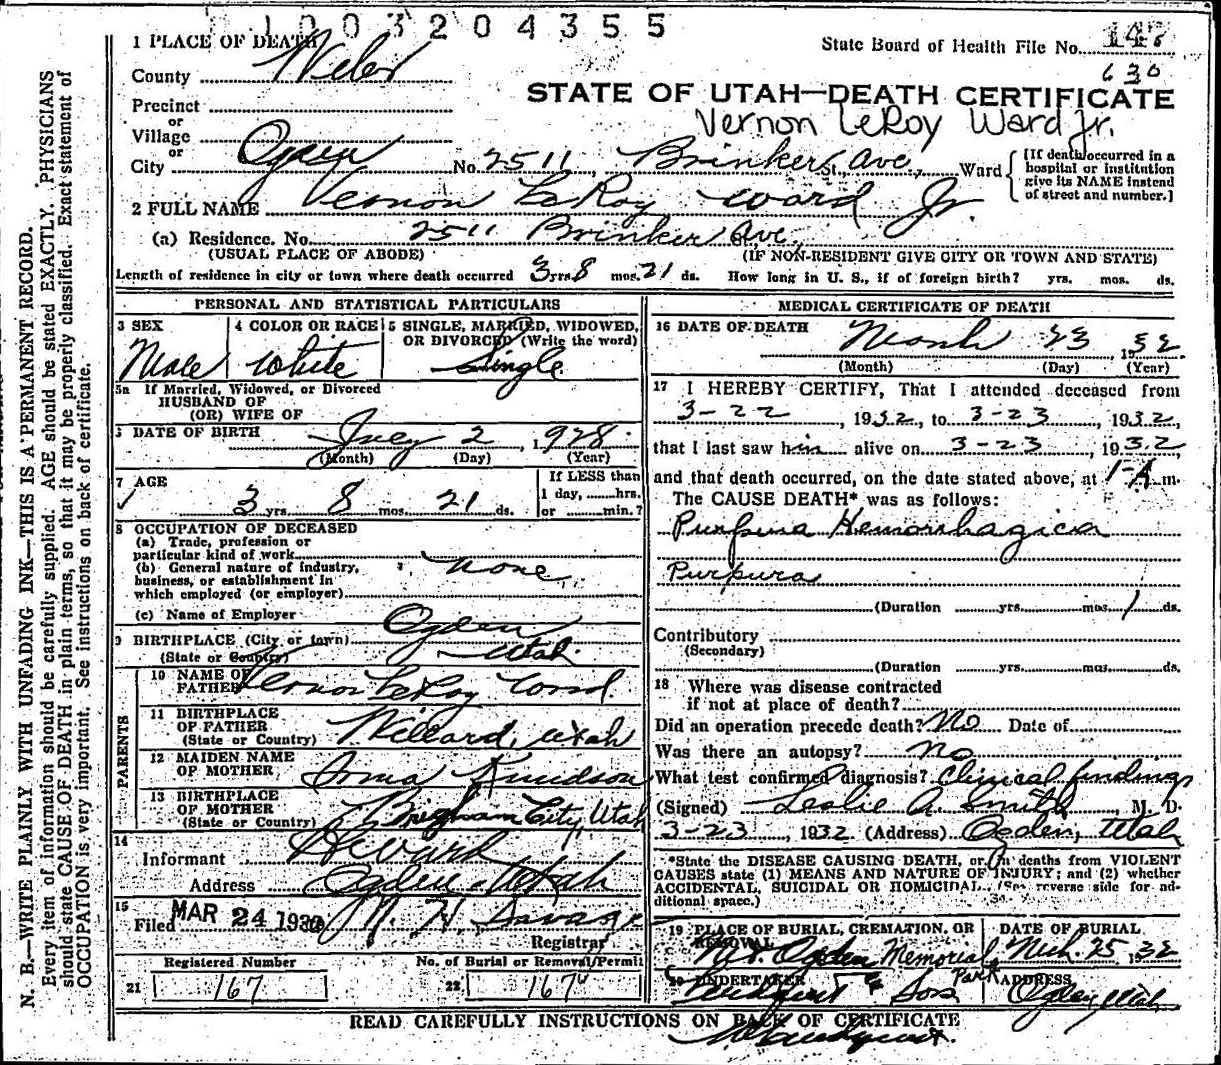 1003204355
1 PLACE OF DEATH
State Board of Health File No. 147
630
County Weber
STATE OF UTAH—DEATH CERTIFICATE
Precinct
Vernon LeRoy Ward Jr.
or
Village
or
City Ogden No. 2511, Brinker St., Ave, Ward
[If death occurred in a hospital or institution give its NAME instead of street and number.]
2 FULL NAME Vernon LeRoy Ward Jr.
(a) Residence. No. 2511 Brinker Ave,
(USUAL PLACE OF ABODE) (IF NON-RESIDENT GIVE CITY OR TOWN AND STATE)
Length of residence in city or town where death occurred 3 yrs 8 mos. 21 ds. How long in U. S., if of foreign birth? yrs. mos. ds.
PERSONAL AND STATISTICAL PARTICULARS
3 SEX
Male
4 COLOR OR RACE
White
5 SINGLE, MARRIED, WIDOWED,
OR DIVORCED (Write the word)
Single
5a If Married, Widowed, or Divorced
HUSBAND OF
(OR) WIFE OF
6 DATE OF BIRTH July 2, 1928
(Month) (Day) (Year)
7 AGE
3 yrs. 8 mos. 21 ds.
If LESS than
1 day, hrs.
or min.?
8 OCCUPATION OF DECEASED
(a) Trade, profession or
particular kind of work
(b) General nature of industry,
business, or establishment in
which employed (or employer)
none
(c) Name of Employer
9 BIRTHPLACE (City or town) Ogden
(State or Country) Utah
PARENTS
10 NAME OF
FATHER Vernon LeRoy Ward
11 BIRTHPLACE
OF FATHER
(State or Country) Willard, Utah
12 MAIDEN NAME
OF MOTHER Irma Knudson
13 BIRTHPLACE
OF MOTHER
(State or Country) Brigham City, Utah
14
Informant Ward
Address Ogden Utah
15
Filed MAR 24 1932 M. H. Savage
Registrar
Registered Number No. of Burial or Removal/Permit
21 167 22 167
MEDICAL CERTIFICATE OF DEATH
16 DATE OF DEATH March 23, 1932
(Month) (Day) (Year)
17 I HEREBY CERTIFY, That I attended deceased from
3-22, 1932, to 3-23, 1932,
that I last saw him alive on 3-23, 1932
and that death occurred, on the date stated above, at 1-A m.
The CAUSE DEATH* was as follows:
Purpura Hemorrhagica
Purpura
(Duration yrs. mos. 1 ds.
Contributory
(Secondary)
(Duration yrs. mos. ds.
18 Where was disease contracted
if not at place of death?
Did an operation precede death? No Date of
Was there an autopsy? no
What test confirmed diagnosis? Clinical findings
(Signed) Leslie A. Smith, M. D.
3-23, 1932 (Address) Ogden, Utah
*State the DISEASE CAUSING DEATH, or in deaths from VIOLENT
CAUSES state (1) MEANS AND NATURE OF INJURY; and (2) whether
ACCIDENTAL, SUICIDAL OR HOMICIDAL. (See reverse side for ad-
ditional space.)
19 PLACE OF BURIAL, CREMATION, OR
REMOVAL
Ogden Memorial Park
DATE OF BURIAL
Mch. 25, 1932
20 UNDERTAKER
Lindquist & Sons
ADDRESS
Ogden Utah
READ CAREFULLY INSTRUCTIONS ON BACK OF CERTIFICATE
N. B.—WRITE PLAINLY WITH UNFADING INK—THIS IS A PERMANENT RECORD.
Every item of information should be carefully supplied. AGE should be stated EXACTLY. PHYSICIANS
should state CAUSE OF DEATH in plain terms, so that it may be properly classified. Exact statement of
OCCUPATION is very important. See instructions on back of certificate.